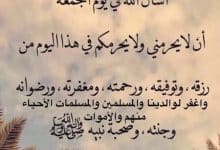 أسأل الله في يوم الجمعة
أن لايحرمني ولايحرمكم في هذا اليوم من
رزقه ، وتوفيقه ، ورحمته ، ومغفرته ، ورضوانه
واغفر لوالدينا والمسلمين والمسلمات الأحياء
منهم والأموات
وجنته ، وصحبة نبيه ﷺ